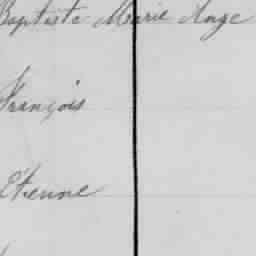 Baptiste Marie Ange
François
Etienne